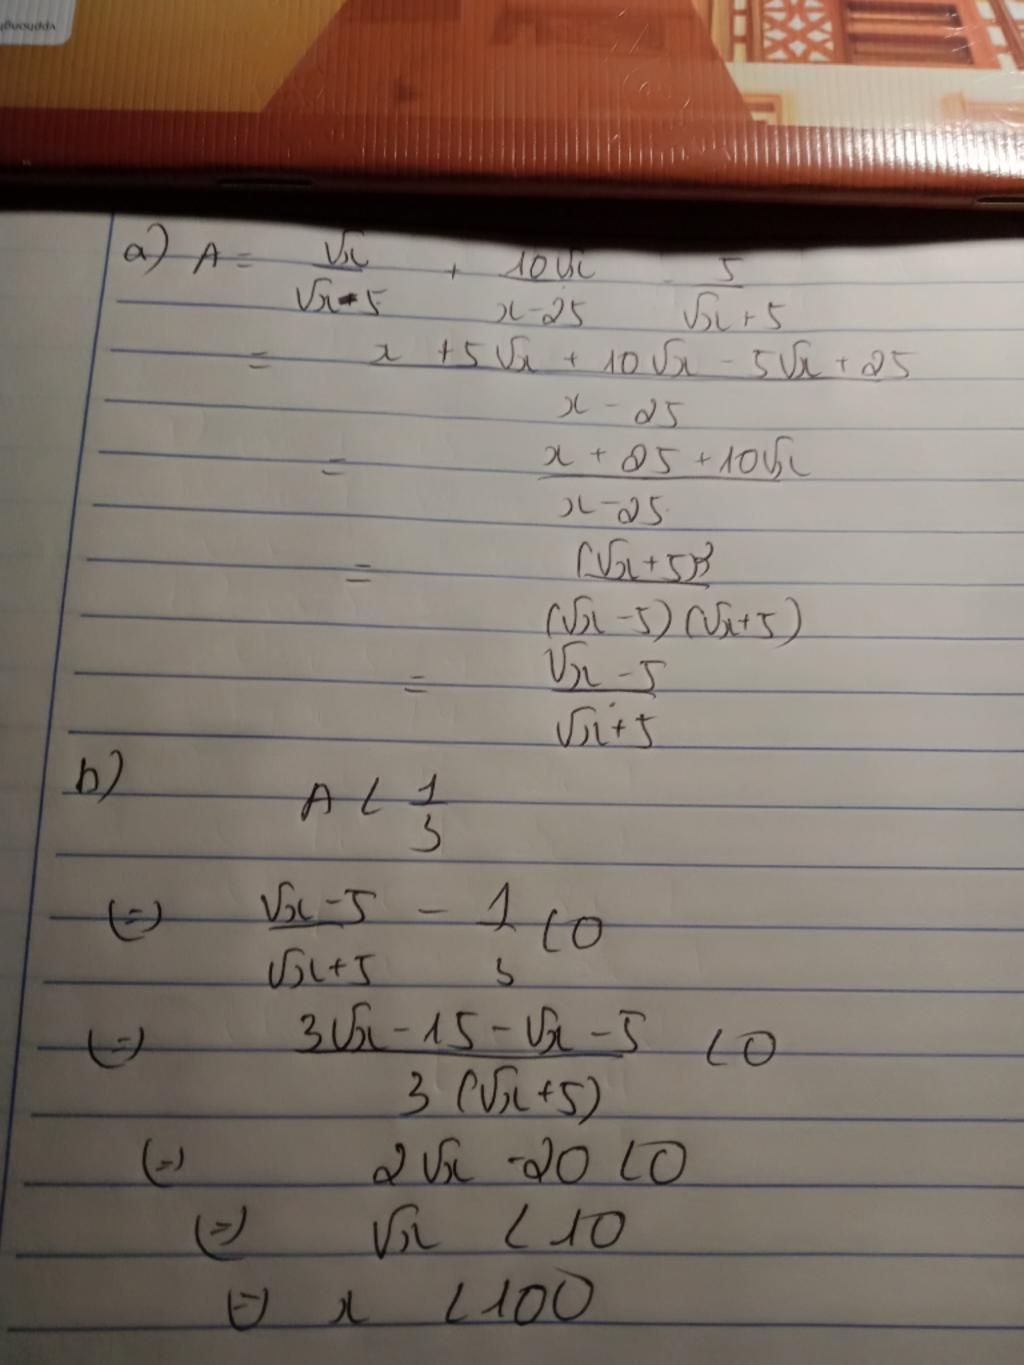 a) A = √x/(√x-5) + 10√x/(x-25) - 5/(√x+5)
= (x + 5√x + 10√x - 5√x + 25)/(x - 25)
= (x + 25 + 10√x)/(x-25)
= (√x+5)²/((√x-5)(√x+5))
= (√x-5)/(√x+5)
b) A < 1/3
(=) (√x-5)/(√x+5) - 1/3 < 0
(=) (3√x-15-√x-5)/(3(√x+5)) < 0
(=) 2√x -20 < 0
(=) √x < 10
(=) x < 100